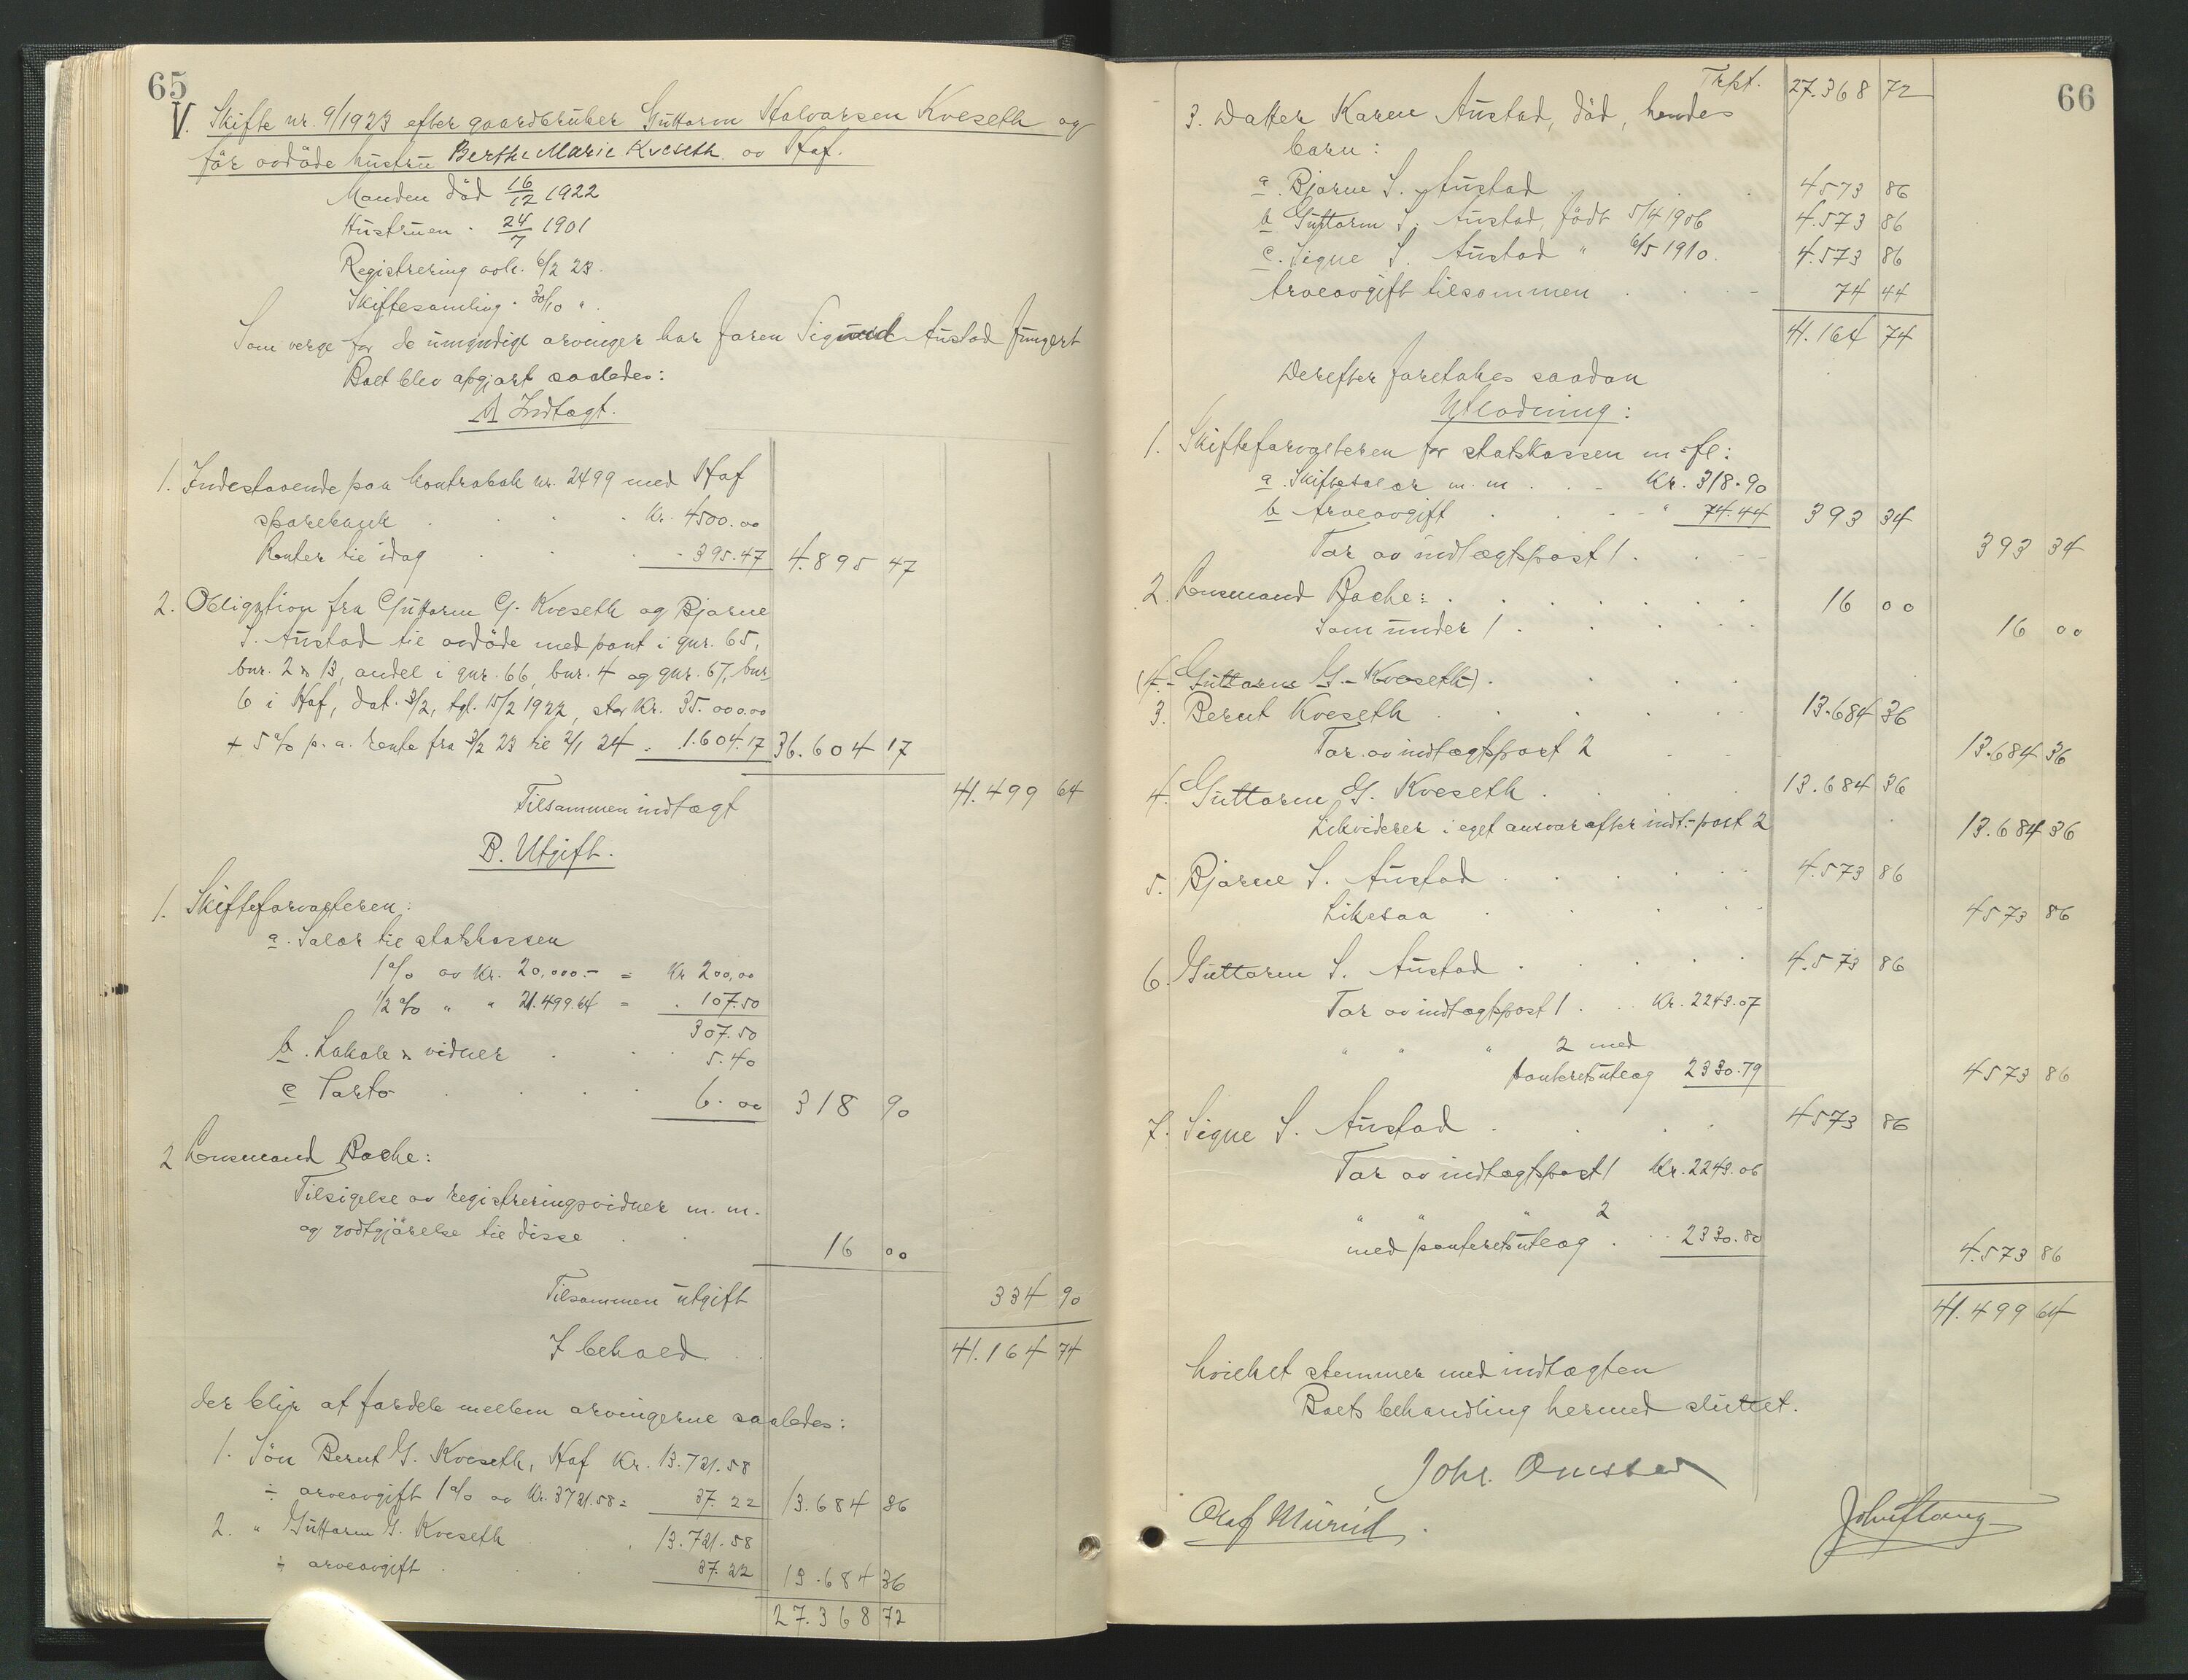 65
V. Skifte nr. 9/1923 efter gaardbruker Guttorm Halvorsen Kveseth og
før avdøde hustru Berthe Marie Kveseth av Haf.
Manden död 16/12 1922
Hustruen " 24/7 1901
Registrering avh. 6/2 23.
Skiftesamling " 30/10 ".
Som verge for de umyndige arvinger har faren Sigurd Austad fungert
Boet blev opgjort saaledes:
A Indtægt.
1. Indestaaende paa kontrabok nr. 2499 med Haf
sparebank . . . Kr. 4500.00
Renter til idag . . - 395.47 4.895 47
2. Obligation fra Guttorm G. Kveseth og Bjarne
S. Austad til avdöde med pant i gnr. 65,
bnr. 2 & 13, andel i gnr. 66, bnr. 4 og gnr. 67, bnr.
6 i Haf, dat. 3/2, tgl. 15/2 1922, stor Kr. 35.000.00
+ 5% p. a. rente fra 3/2 23 til 2/1 24 . 1.604.17 36.604 17
Tilsammen indtægt 41.499 64
B. Utgift.
1. Skifteforvalteren:
a. Salær til statskassen
1% av Kr. 20,000.- = Kr 200,00
1/2 % " " 21.499.64 = . 107.50
307.50
b. Lokale & vidner . . . 5.40
c Porto . . . 6.00 318 90
2 Lensmand Bache:
Tilsigelse av registreringsvidner m. m.
og godtgjörelse til disse . . 16 00
Tilsammen utgift 334 90
I behold . . 41.164 74
der blir at fordele mellem arvingerne saaledes:
1. Sön Bernt G. Kveseth, Haf Kr. 13.721.58
÷ arveavgift 1% av Kr. 3721.58 = 37.22 13.684 36
2. " Guttorm G. Kveseth . 13.721.58
÷ arveavgift . . 37.22 13.684 36
27.368 72
66
Trpt. 27.368 72
3. Datter Karen Austad, död, hendes
barn:
a. Bjarne S. Austad . . 4573 86
b Guttorm S. Austad, födt 5/4 1906 4.573 86
c. Signe S. Austad " 6/5 1910. 4.573 86
Arveavgift tilsammen . . - 74 44
41.164 74
Derefter foretakes saadan
Utlodning:
1. Skifteforvalteren for statskassen m. fl:
a. Skiftesalær m. m . . - Kr. 318.90
b Arveavgift . . - " 74.44 393 34
Tar av indtægtspost 1 . . - - 393 34
2. Lensmand Bache: . . . . . . 16 00
Som under 1 . . . . . 16 00
(4. Guttorm G. Kveseth) . . . .
3. Bernt Kveseth . . . . . 13.684 36
Tar av indtægtspost 2 . . 13.684 36
4. Guttorm G. Kveseth . . . 13.684 36
Likviderer i eget ansvar efter indt.-post 2 13.684 36
5. Bjarne S. Austad . . . . . . 4.573 86
Likesaa . . . . 4573 86
6. Guttorm S. Austad . . . . . 4.573 86
Tar av indtægtspost 1 . . Kr. 2243.07
" " " 2 med
panteretsutlæg 2330.79 4573 86
7. Signe S. Austad . . . . 4573 86
Tar av indtægtspost 1 Kr. 2243.06
" " " 2
med panteretsutlæg . . . 2330.80 4.573 86
41.499 64
hvilket stemmer med indtægten
Boets behandling hermed sluttet.